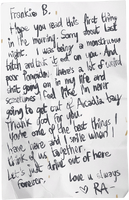 Frankie B.
Hope you read this first thing
in the morning. Sorry about last
night. I was being a monstrous
bitch and took it out on you. And
poor Pomponia. There's a lot of weird
shit going on in my life and
sometimes I feel like I'm never
going to get out of Acadia Bay.
Thank God for you.
You're one of the best things I
have here and I smile when I
think of us together.
Let's just drive out of here.
Forever.
Love u always
RA -